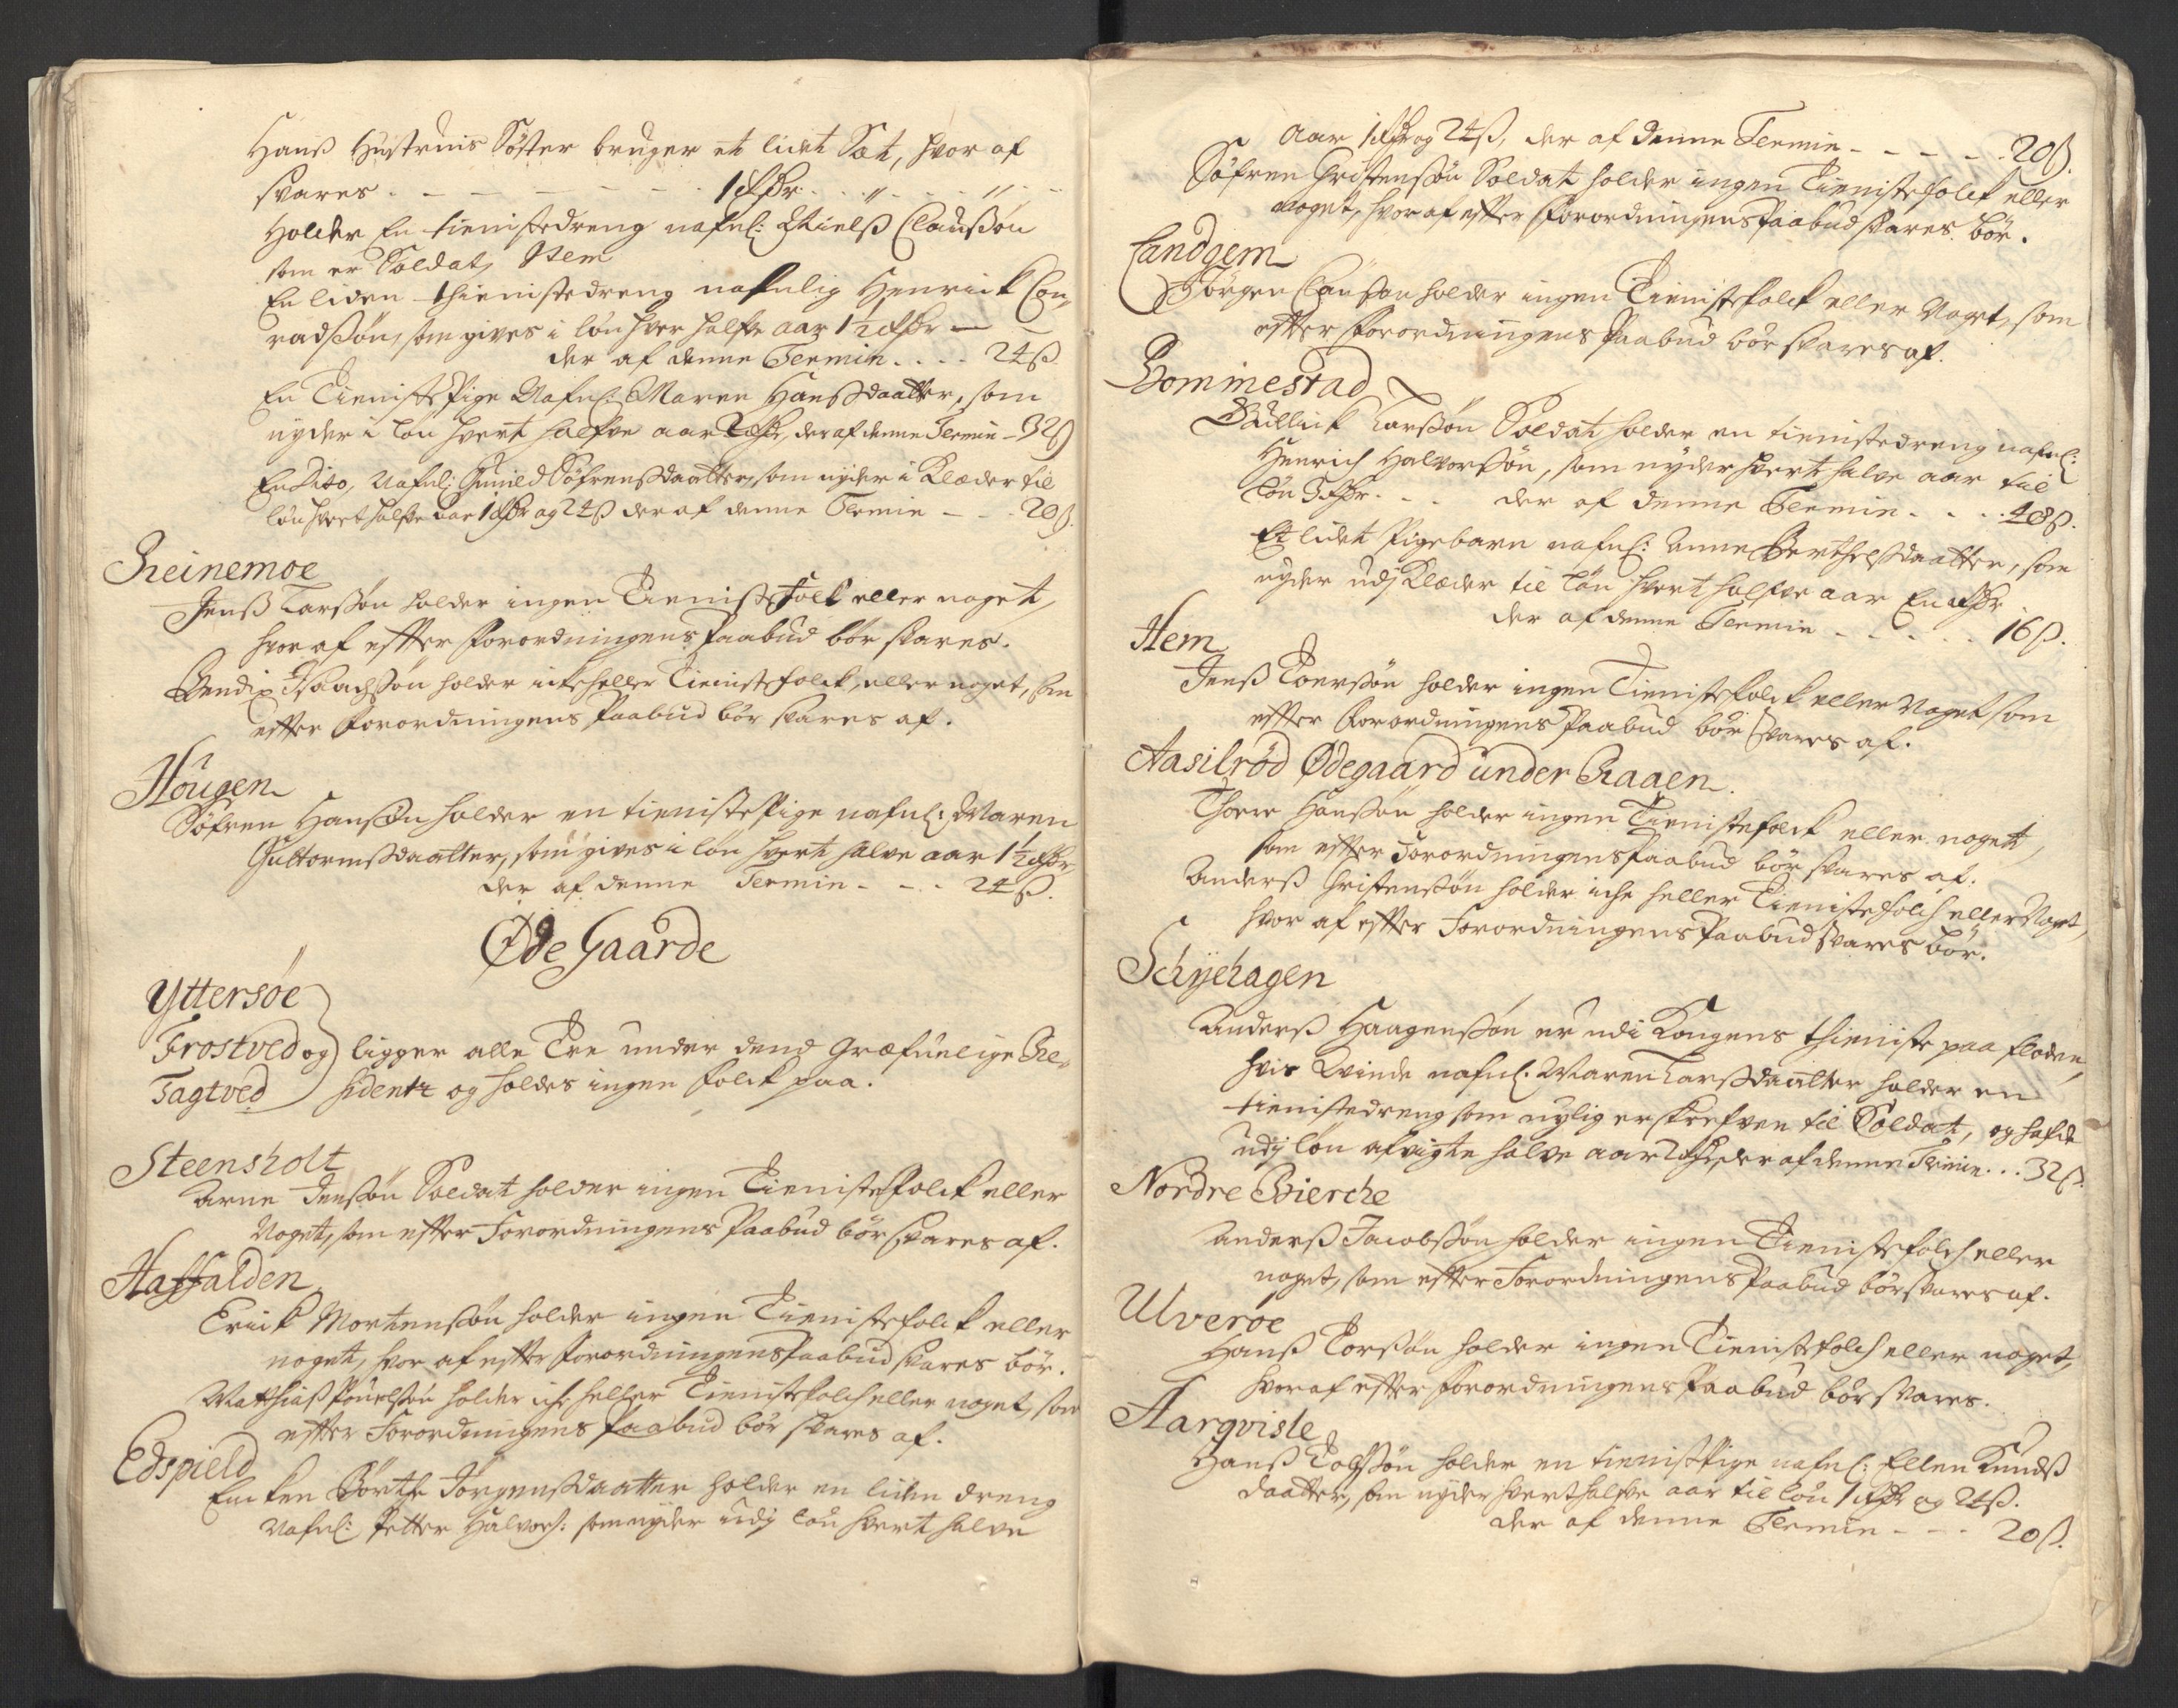 Hanß Hustruis Söster bruger et lidet Sæt, hvor af
svares . - - - - - - 1 Rdr . . " . . "
Holder En tienistedreng nafnl: Nielß Claußön
som er Soldat, Item
En liden thienistedreng nafnlig Henrick Con¬
radßön, som gives i lön hver halfve aar 1½ Rdr —
der af denne Termin . . . . 24 ß
En Tieniste Pige Nafnl: Maren Hanßdaatter, som
nyder i lön hvert halfve aar 2 Rdr, der af denne Termin - 32 ß
En Dito, Nafnl: Gunild Söfrenßdaatter, som nyder i Klæder til
lön hvert halfve aar 1 Rdr og 24 ß der af denne Termin - - - 20 ß.
Reinemoe
Jenß Larßön holder ingen Tieniste Folck eller noget,
hvor af effter Forordningens Paabud bör svares.
Bendix Isaachßön holder icke heller Tienistefolck, eller noget, som
effter Forordningens Paabud bör svares af.
Hougen
Söfren Hanßön holder en tieniste Pige nafnl: Maren
Guttormßdaatter, som gives i lön hvert halve aar 1½ Rdr
der af denne Termin - - - 24 ß.
Øde Gaarde
Yttersöe
Frostved og ligger alle Tre under dend Græfuelige Re¬
Fagtved sidentz og holdes ingen folck paa.
Steensholt
Arne Jenßön Soldat holder ingen Tienistefolck eller
Noget, som effter Forordningens Paabud bör svares af.
Haffalden
Erick Mortenßön holder ingen Tienistefolck eller
noget, hvor af effter Forordningens Paabud svares bör.
Matthiaß Poulßön holder iche heller Tienistefolch eller noget, som
effter Forordningens Paabud bör svares af.
Edspield
Encken Börthe Jörgenßdaatter holder en liden dreng
Nafnl: Petter Halvorß: som nyder udj lön hvert halve
aar 1 Rdr og 24 ß, der af denne Termin - - - - - 20 ß.
Söfren Christenßön Soldat holder ingen Tienistefolck eller
noget, hvor af effter Forordningens Paabud svares bör.
Landgem
Jörgen Claußön holder ingen Tienistefolck eller Noget, som
effter Forordningens Paabud bör svares af.
Bommestad
Larßön Soldat holder en tienistedreng nafnl:
Henrich Halvorßön, som nyder hvert halve aar til
lön 3 Rdr . - . der af denne Termin . . . . 48 ß.
Et lidet Pigebarn nafnl: Anne Berthelßdaatter, som
nyder udj Klæder til lön hvert halfve aar En Rdr
der af denne Termin - - - - - 16 ß.
Hem
Jenß Toerßön holder ingen Tienistefolck eller Noget som
effter Forordningens Paabud bör svares af.
Aasilröd Ödegaard under Raaen.
Thore Hanßön holder ingen Tienistefolck eller noget,
som effter Forordningens Paabud bör svares af.
Anderß Christenßön holder iche heller Tienistefolch eller Noget,
hvor af effter Forordningens Paabud svares bör.
Schyehagen
Anderß Haagenßön er udi Kongens thieniste paa Floden,
hvis Qvinde nafnl: Maren Larßdaatter holder en
tienistedreng som nylig er skrefven til Soldat, og hafde
udj lön afvigte halve aar 2 Rdr, der af denne Termin . . . 32 ß.
Nordre Bierche
Anderß Jacobßön holder ingen Tienistefolch eller
noget, som effter Forordningens Paabud bör svares af.
Ulveröe
Hanß Torßön holder ingen Tienistefolch eller noget,
hvor af effter Forordningens Paabud bör svares.
Aarqvisle
Hanß holder en tienistPige nafnl: Ellen Knudß
daatter, som nyder hvert halfve aar til lön 1 Rdr og 24 ß.
der af denne Termin - - - 20 ß.